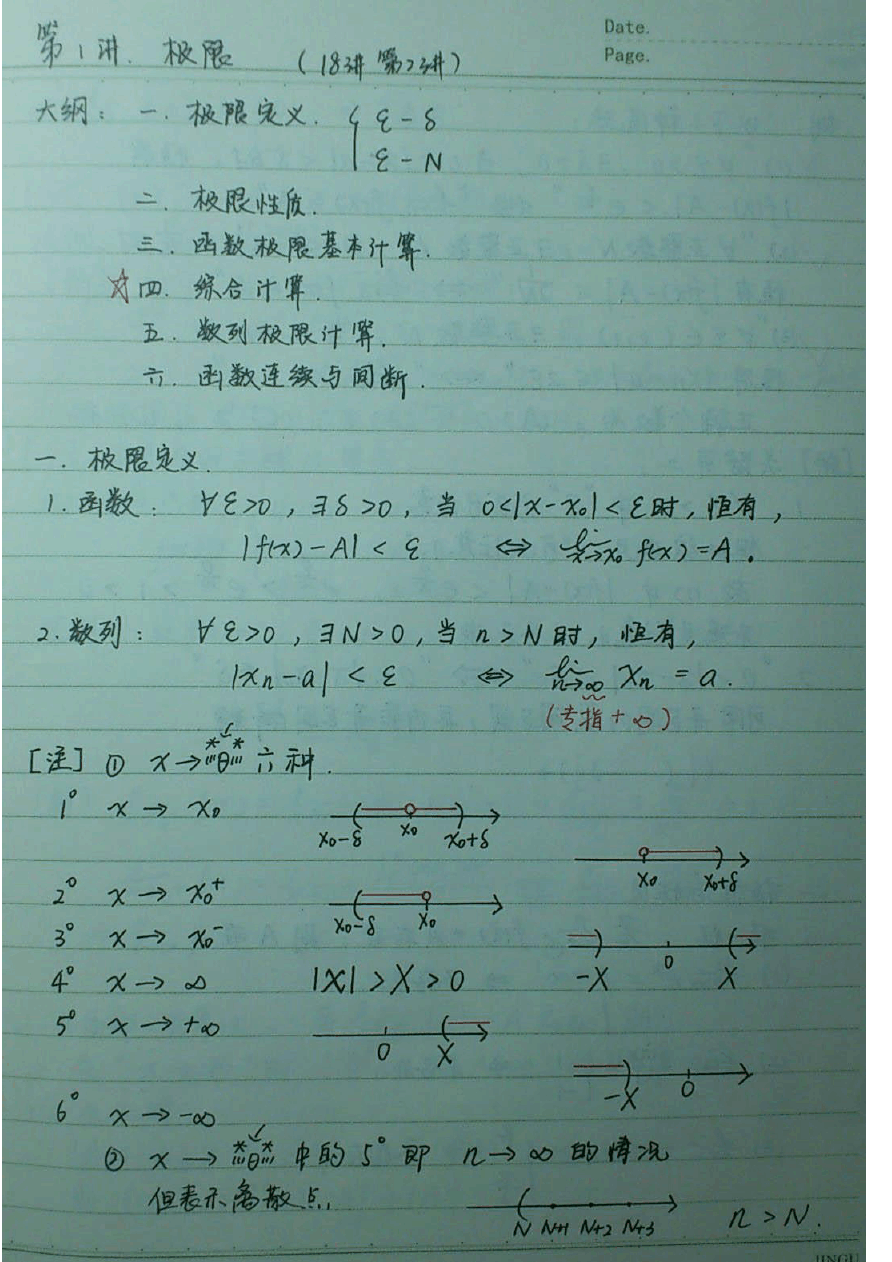 Date.
Page.
第1讲. 极限 (18讲 第2讲)
大纲: 一. 极限定义. { ε-δ
ε-N
二. 极限性质.
三. 函数极限基本计算.
☆四. 综合计算.
五. 数列极限计算.
六. 函数连续与间断.
一. 极限定义.
1. 函数: ∀ε>0, ∃δ>0, 当 0<|x-x₀|<ε时, 恒有,
|f(x)-A|<ε ⇔ lim x→x₀ f(x)=A.
2. 数列: ∀ε>0, ∃N>0, 当 n>N 时, 恒有,
|xn-a|<ε ⇔ lim n→∞ xn=a.
(专指+∞)
[注] ① x→ 六种.
1° x→x₀
x₀-δ x₀ x₀+δ
x₀ x₀+δ
2° x→x₀⁺
x₀-δ x₀
3° x→x₀⁻
-X 0 X
4° x→∞ |x|>X>0
5° x→+∞
0 X
-X 0
6° x→-∞
② x→ 中的5°即 n→∞ 的情况
但表示离散点,
N N+1 N+2 N+3 n>N.